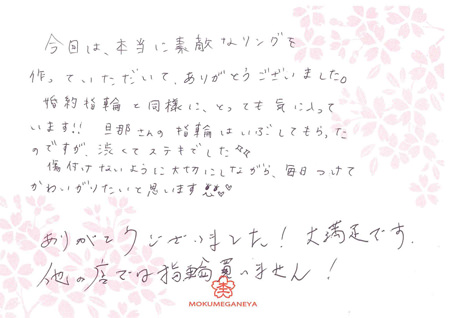 今回は、本当に素敵なリングを
作っていただいて、ありがとうございました。
婚約指輪と同様に、とっても気に入って
います!! 旦那さんの指輪はいぶしてもらった
のですが、渋くてステキでした
傷付けないように大切にしながら、毎日つけて
かわいがりたいと思います
ありがとうございました! 大満足です.
他の店では指輪買いません!
MOKUMEGANEYA